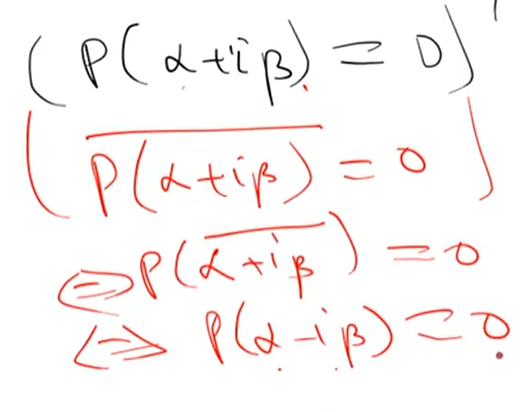 (P(α+iβ) = 0)'
(P̅(̅α̅+̅i̅β̅)̅ = 0)
⇔ P(α̅+̅i̅β̅) = 0
⇔ P(α-iβ) = 0